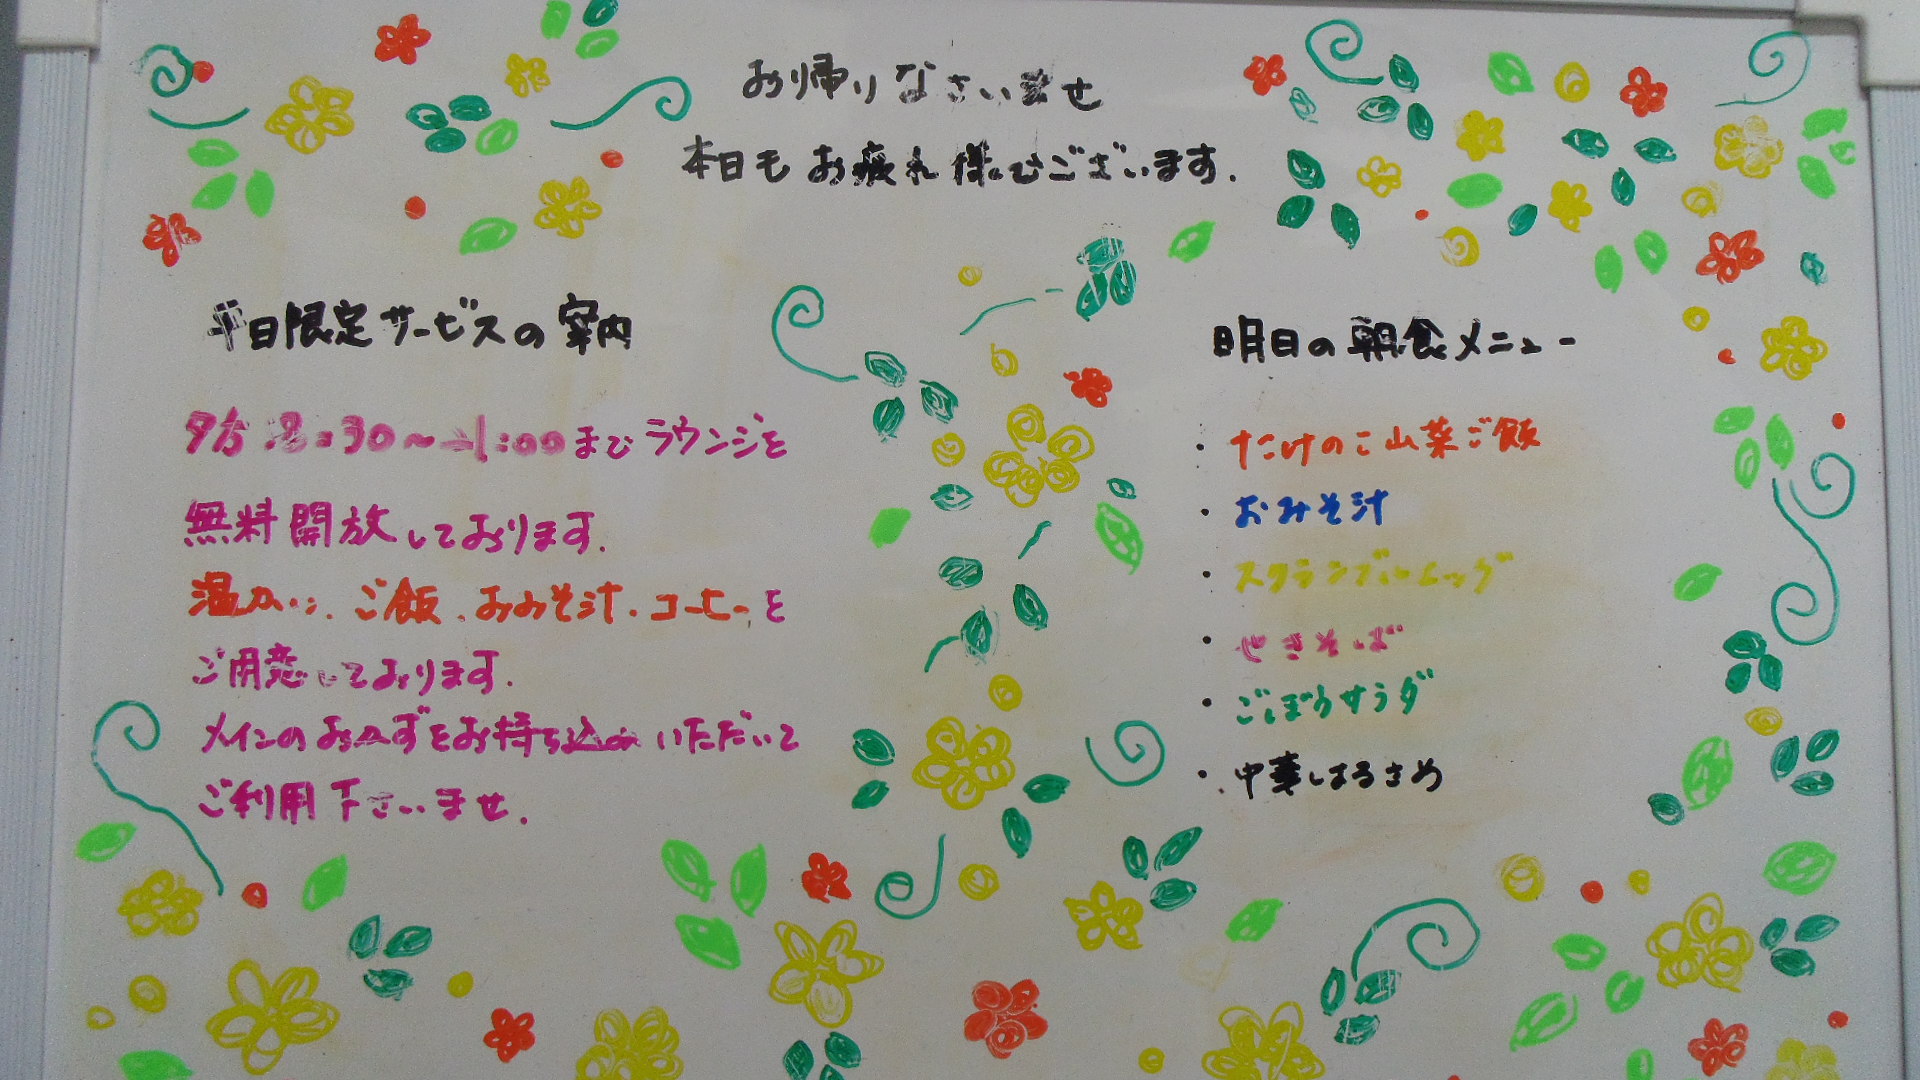 お帰りなさいませ
本日もお疲れ様でございます.
平日限定サービスの案内
夕方:8:30～11:00までラウンジを
無料開放しております.
温かい、ご飯、おみそ汁・コーヒーを
ご用意しております.
メインのおかずをお持ち込みいただいて
ご利用下さいませ.
明日の朝食メニュー
・たけのこ山菜ご飯
・おみそ汁
・スクランブルエッグ
・やきそば
・ごぼうサラダ
・中華はるさめ